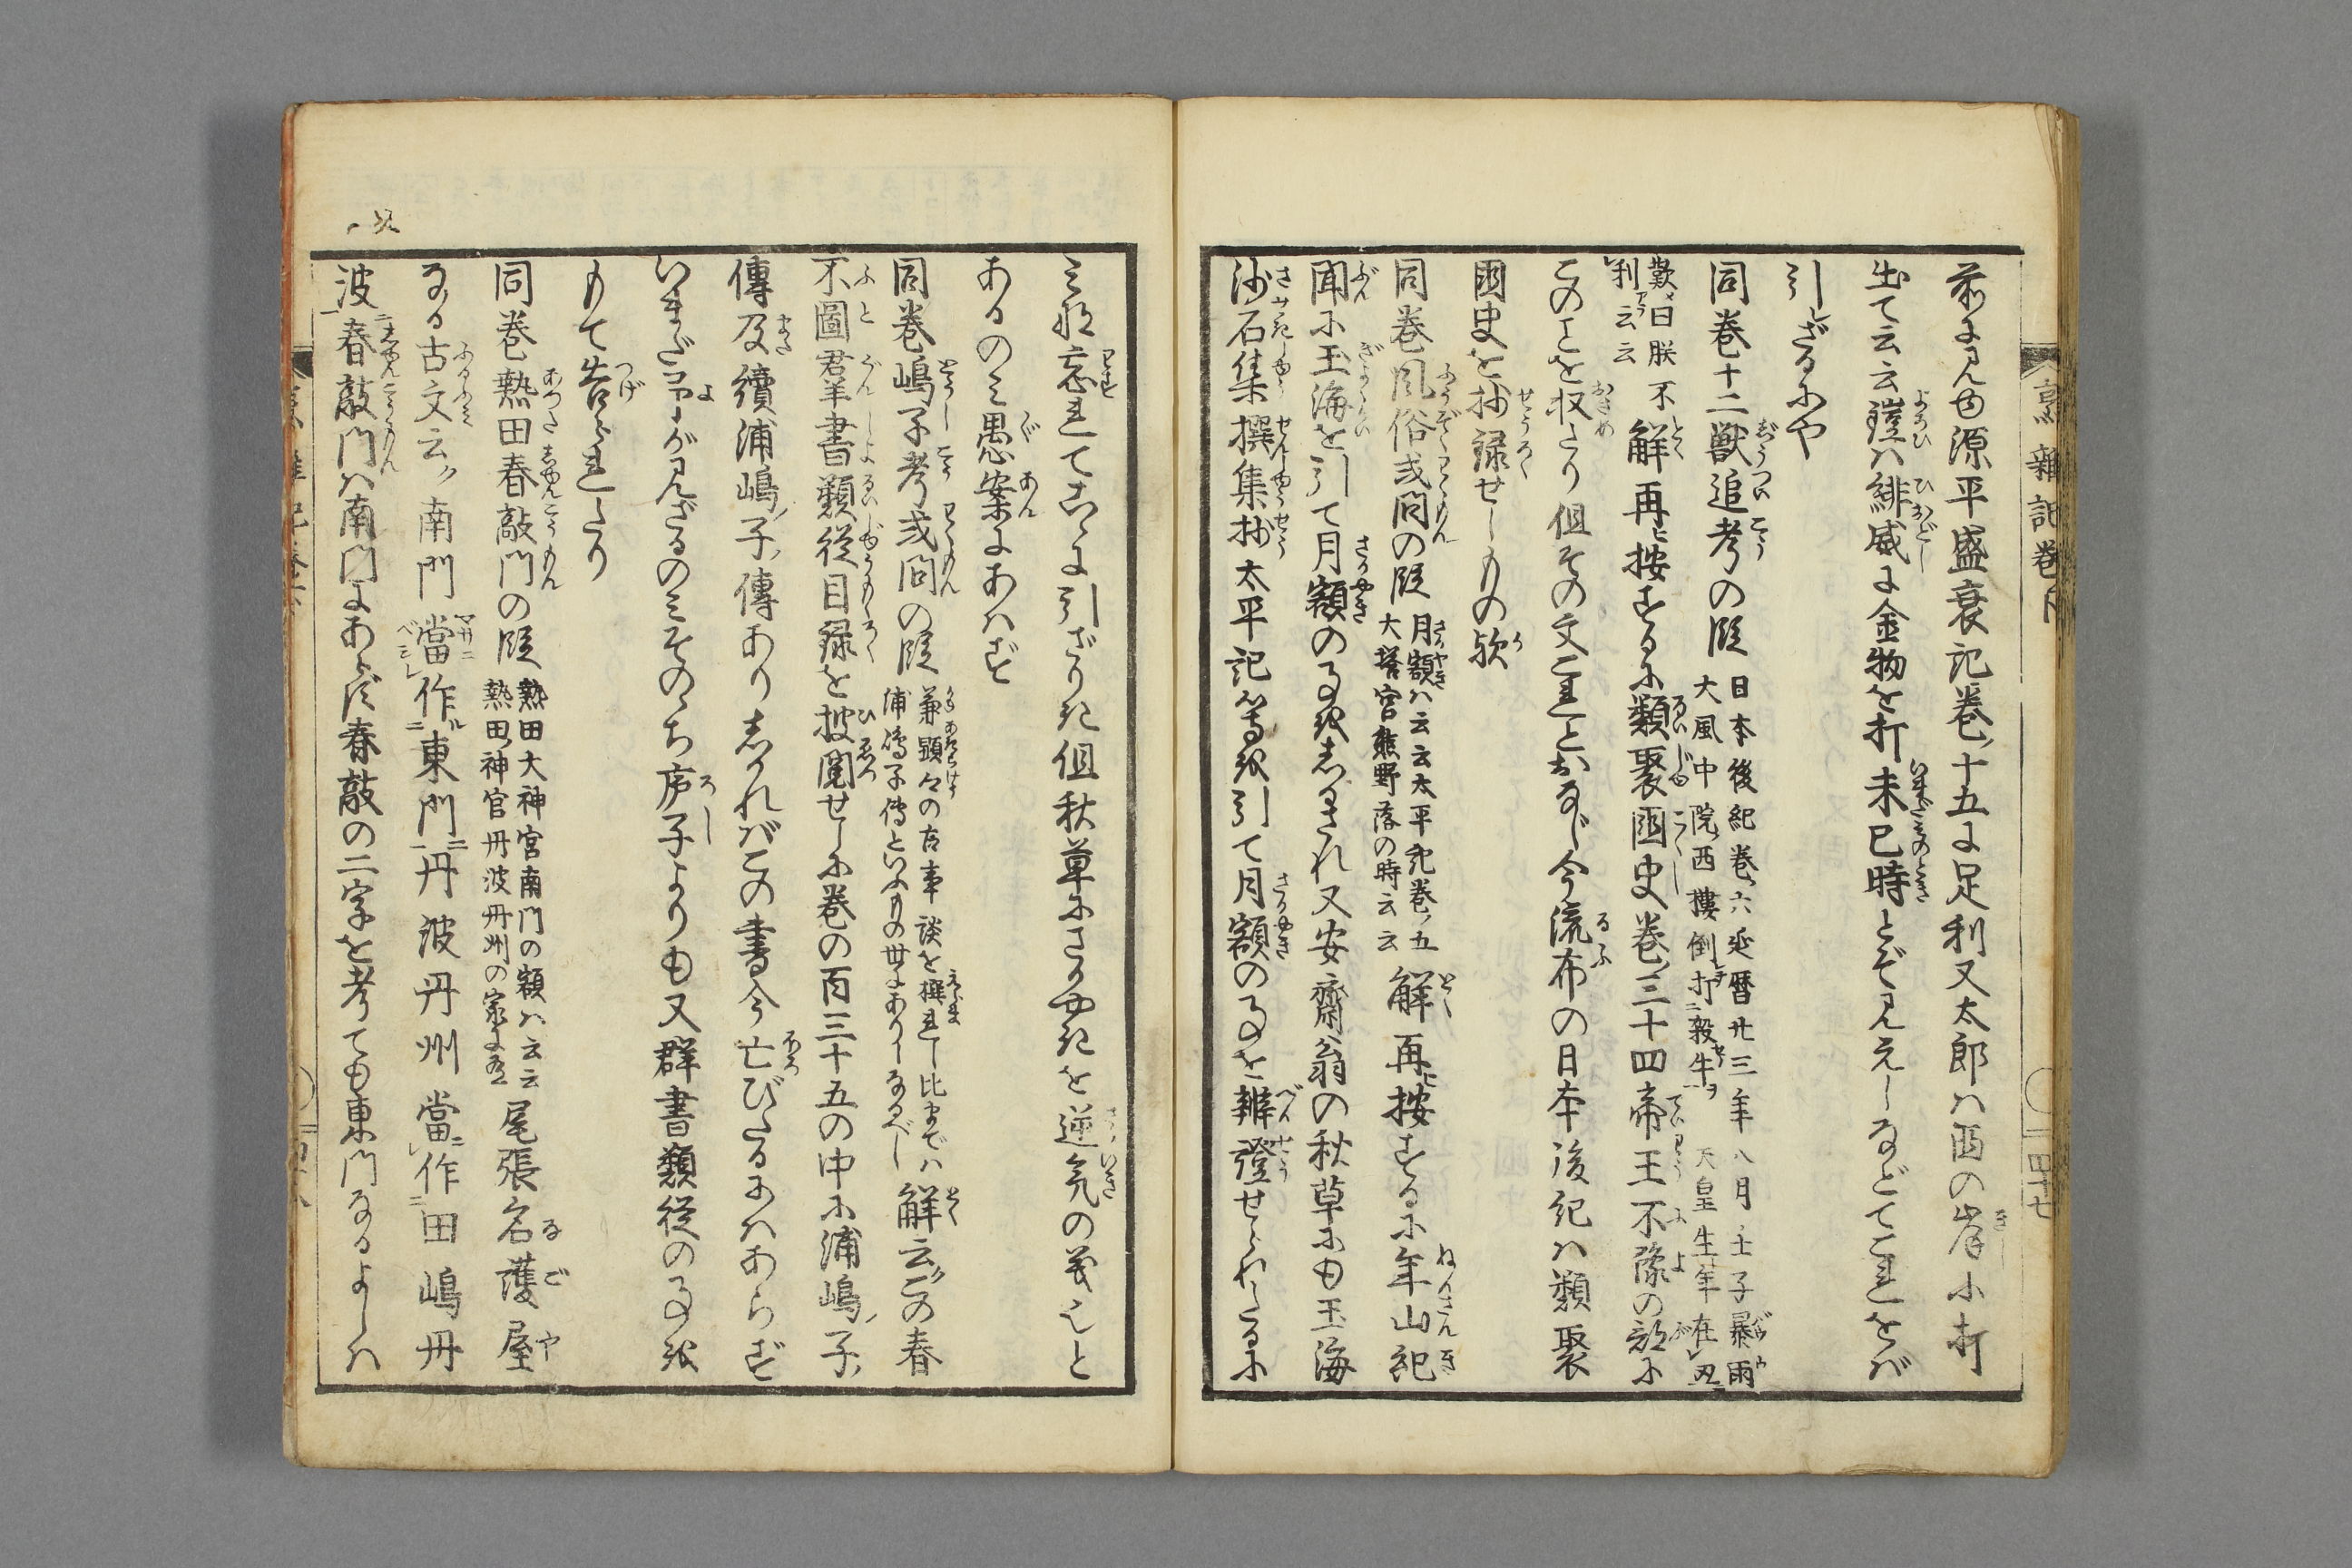 前に見ゆ源平盛衰記巻ノ十五に足利又太郎ハ西の岸に打
出て云云鎧ハ緋威に金物を打未巳時とぞ見えしなどてこれをバ
引レざるにや
同巻十二獣追考の段
日本後紀巻ノ六延暦廿三年八月壬子暴雨
大風中院ノ西樓倒レテ打ニ殺牛ヲ一天皇生年在レ丑ニ
歎メ曰朕不
レ利アラ云云
解再ヒ按ずるに類聚國史巻ノ三十四帝王不豫の部に
このことを収めたり但その文これとおなじ今流布の日本後紀ハ類聚
國史を抄録せしもの歟
同巻風俗或問の段
月額ハ云云太平記巻ノ五
大塔宮熊野落の時云云
解再ヒ按ずるに年山紀
聞に玉海を引て月額の事をしるされ又安齋翁の秋草にも玉海
沙石集撰集抄太平記等を引て月額の事を辨證せられたるに
ミな忘れてこゝに引ざりき但秋草にさかやきを逆気の義也と
あるのミ愚案にあハず
同巻嶋子考或問の段
兼顕々の古事談を撰れし比までハ
浦嶋子傳といふもの世にありしなるべし
解云クこの春
不圖群書類從目録を披閲せしに巻の百三十五の中に浦嶋ノ子ノ
傳及續浦嶋ノ子ノ傳ありしかれバこの書今亡びたるにハあらず
いまだ予が見ざるのミそのゝち庐子よりも又群書類從の事を
もて告られたり
同巻熱田春敲門の段
熱田大神宮南門の額ハ云云
熱田ノ神官丹波丹州の家に有
尾張名護屋
なる古文云ク南門當ニレ作ルニ東門ニ一丹波丹州當ニレ作ニ田嶋丹
波一春敲門ハ南門にあらず春敲の二字を考ても東門なるよしハ
烹雑記巻下
四十七